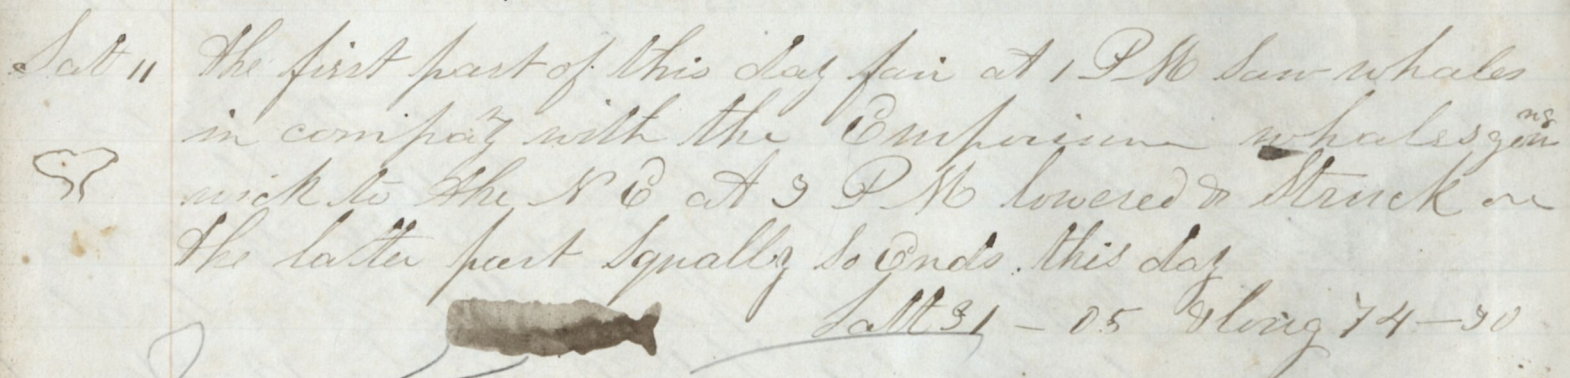 Satt 11 the first part of this day fair at 1 PM Saw whales
in compay with the Emporium whales going
wick to the N E at 3 PM lowered & Struck on
the latter part Squally So Ends this day
Latt 31 - 05 & long 74 - 30